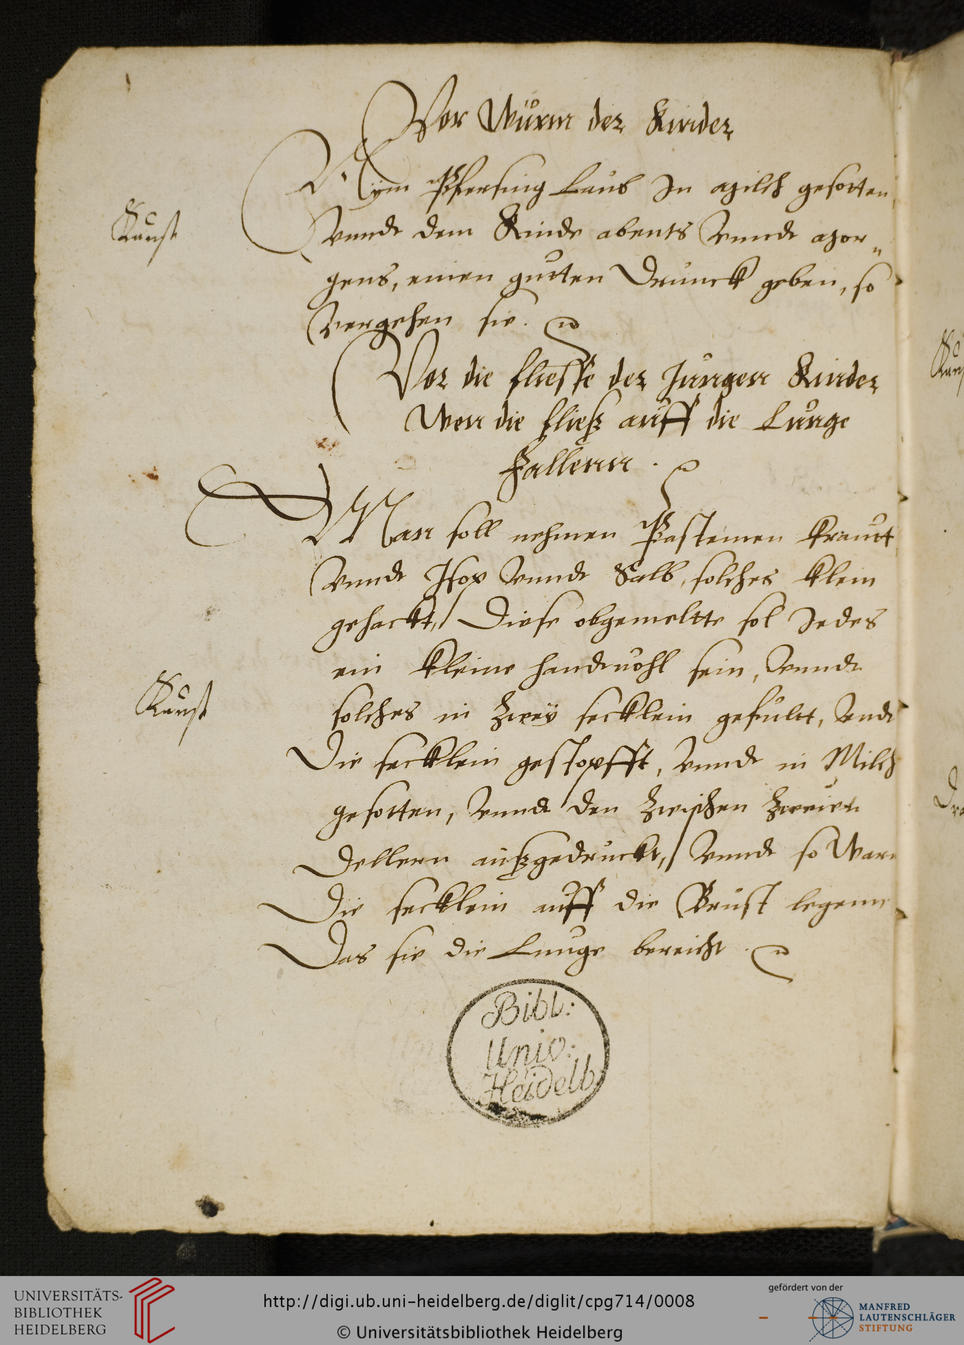 Vor Würm der Kinder
Kunst
Nym Pfersing Laub In Milch gesotten
vnnde dem Kinde abents vnnde mor„
gens, einen gutten Drunck geben, so
vergehen sie.
Vor die fliesse der Jungen Kinder
Wen die fließ auff die Lunge
Fallenn.
Man soll nehmen Pastemen kraütt
vnnde Isop vnnde Salb, solches klein
gehackt, Diese obgemeltte sol Jedes
ein kleine handtvohl sein, vnnde
Kunst
solches in Zweÿ secklein gefultt, vnde
Die secklein gestopfft, vnnde in Milch
gesotten, vnnde den Zwischen Zweien
Dellern außgedruckt, vnnde so Warm
Die secklein auff die Brust legenn
Das sie die Lunge bereicht.
Bibl:
Univ:
Heidelb
UNIVERSITÄTS-
BIBLIOTHEK
HEIDELBERG
http://digi.ub.uni-heidelberg.de/diglit/cpg714/0008
© Universitätsbibliothek Heidelberg
gefördert von der
MANFRED
LAUTENSCHLÄGER
STIFTUNG